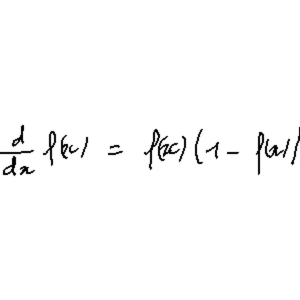 d/dx f(x) = f(x)(1 - f(x))